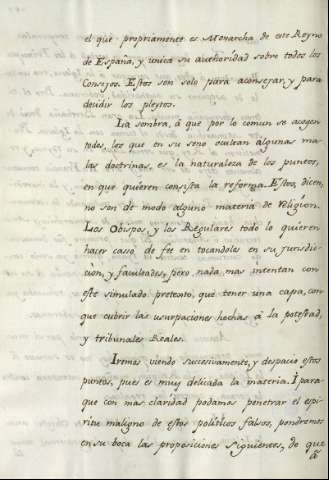 el que propriamente es Monarcha de este Reyno
de España, y unica su authoridad sobre todos los
Consejos. Estos son solo para aconsejar, y para
decidir los pleytos.
La sombra, á que por lo comun se acogen
todos, los que en su seno ocultan algunas ma
las doctrinas, es la naturaleza de los puntos,
en que quieren consista la reforma. Estos, dicen,
no son de modo alguno materia de religion.
Los Obispos, y los Regulares todo lo quieren
hacer caso de feé en tocandoles en su jurisdi-
cion, y facultades, pero nada mas intentan con
este simulado pretexto, que tener una capa, con
que cubrir las usurpaciones hechas á la potestad,
y tribunales Reales.
Iremos viendo successivamente, y despacio estos
puntos, pues es muy delicada la materia. I para
que con mas claridad podamos penetrar el espi-
ritu maligno de estos politicos falsos, pondremos
en su boca las proposiciones siguientes, de que